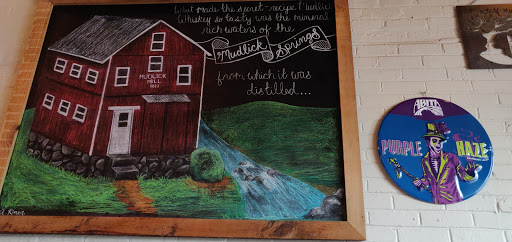 What made the secret-recipe Mudlick
Whiskey so tasty was the mineral
rich waters of the
Mudlick Springs
from which it was
distilled...
MUDLICK
MILL
ABITA
PURPLE HAZE